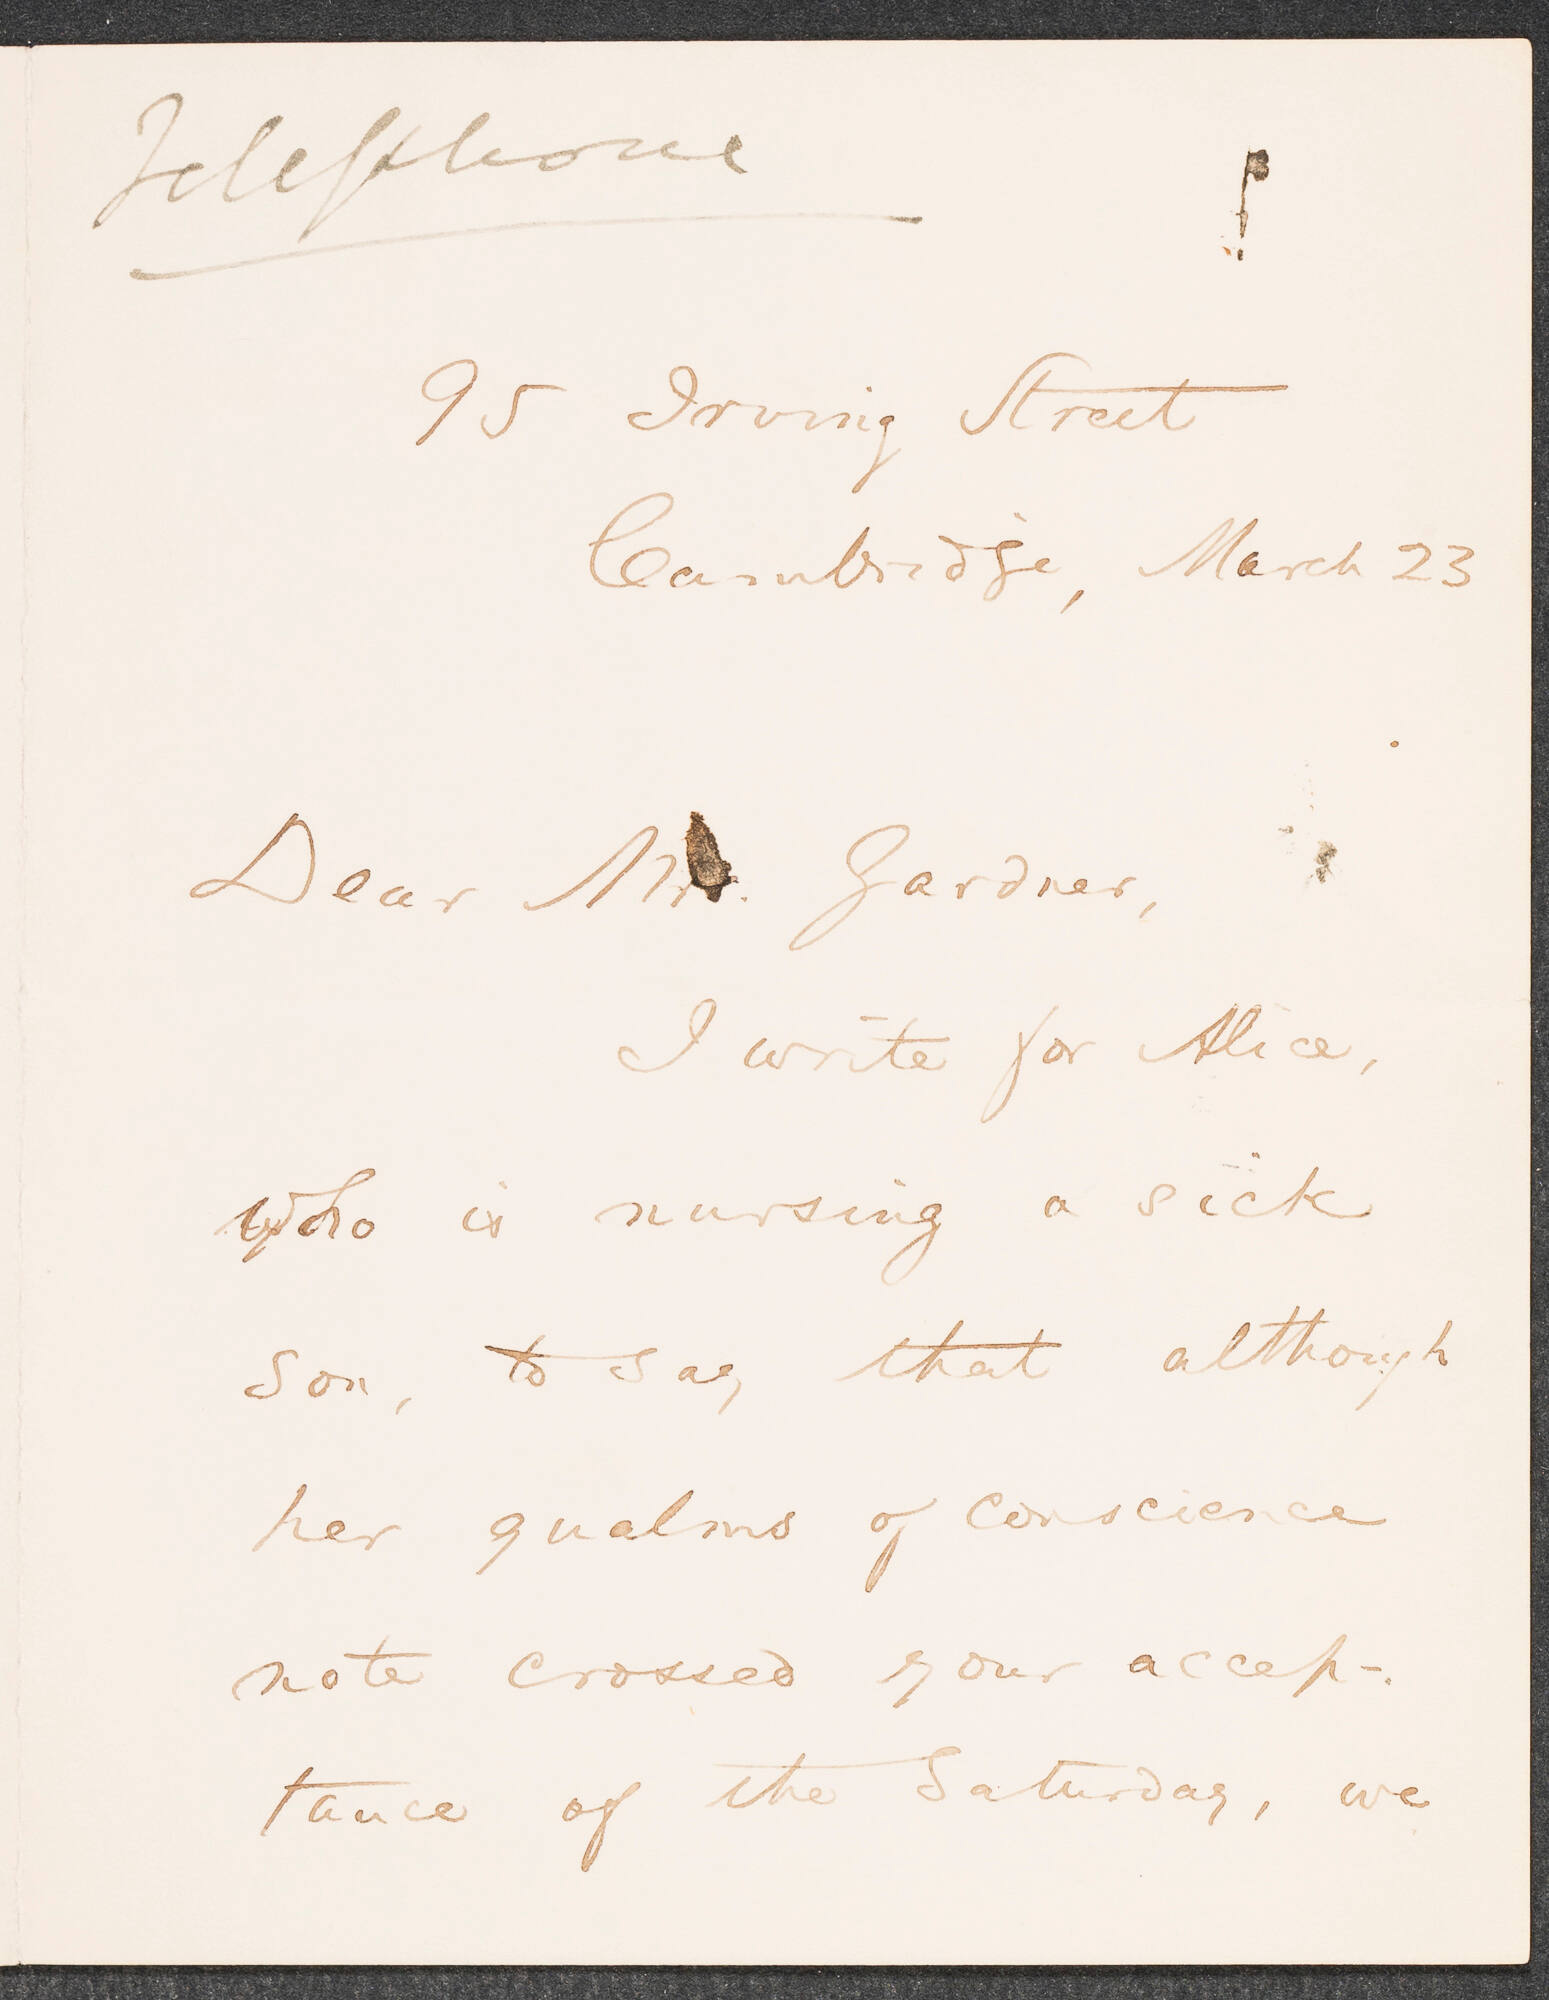 Telephone
95 Irving Street
Cambridge, March 23
Dear Mrs. Gardner,
I write for Alice,
who is nursing a sick
son, to say that although
her qualms of conscience
note crossed your accep-
tance of the Saturday, we